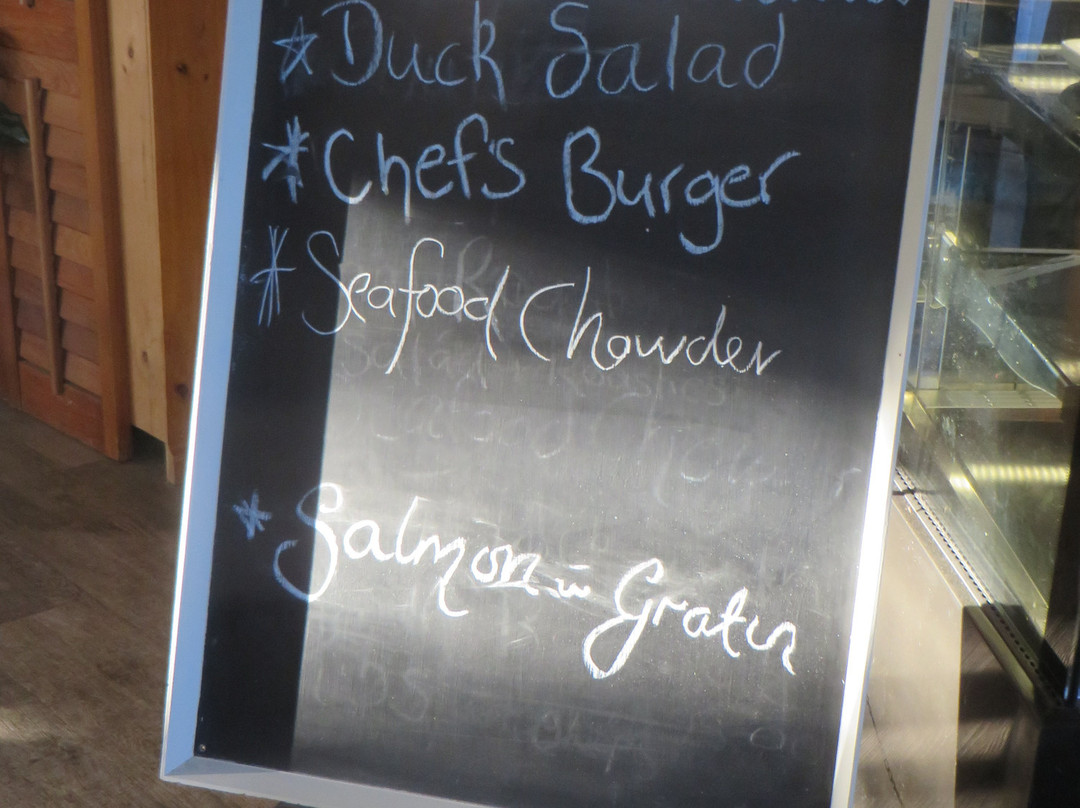 * Duck Salad
* Chef's Burger
* Seafood Chowder
* Salmon - Gratin